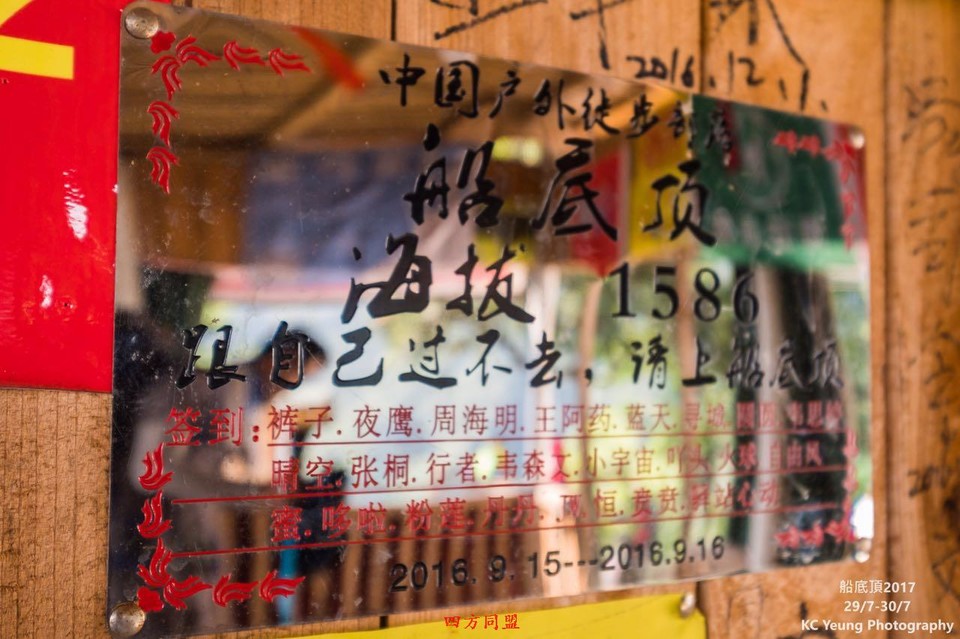 2016.12.1.
中国户外徒步部落
船底顶
海拔 1586
跟自己过不去，请上船底顶
签到:裤子.夜鹰.周海明.王阿药.蓝天.寻城.圆圆.
晴空.张桐.行者.韦森文.小宇宙.吖头.火球.自由风
蜜.哆啦.粉莲.丹丹.恒.贲贲.驿站心动
2016.9.15---2016.9.16
四方同盟
船底頂2017
29/7-30/7
KC Yeung Photography